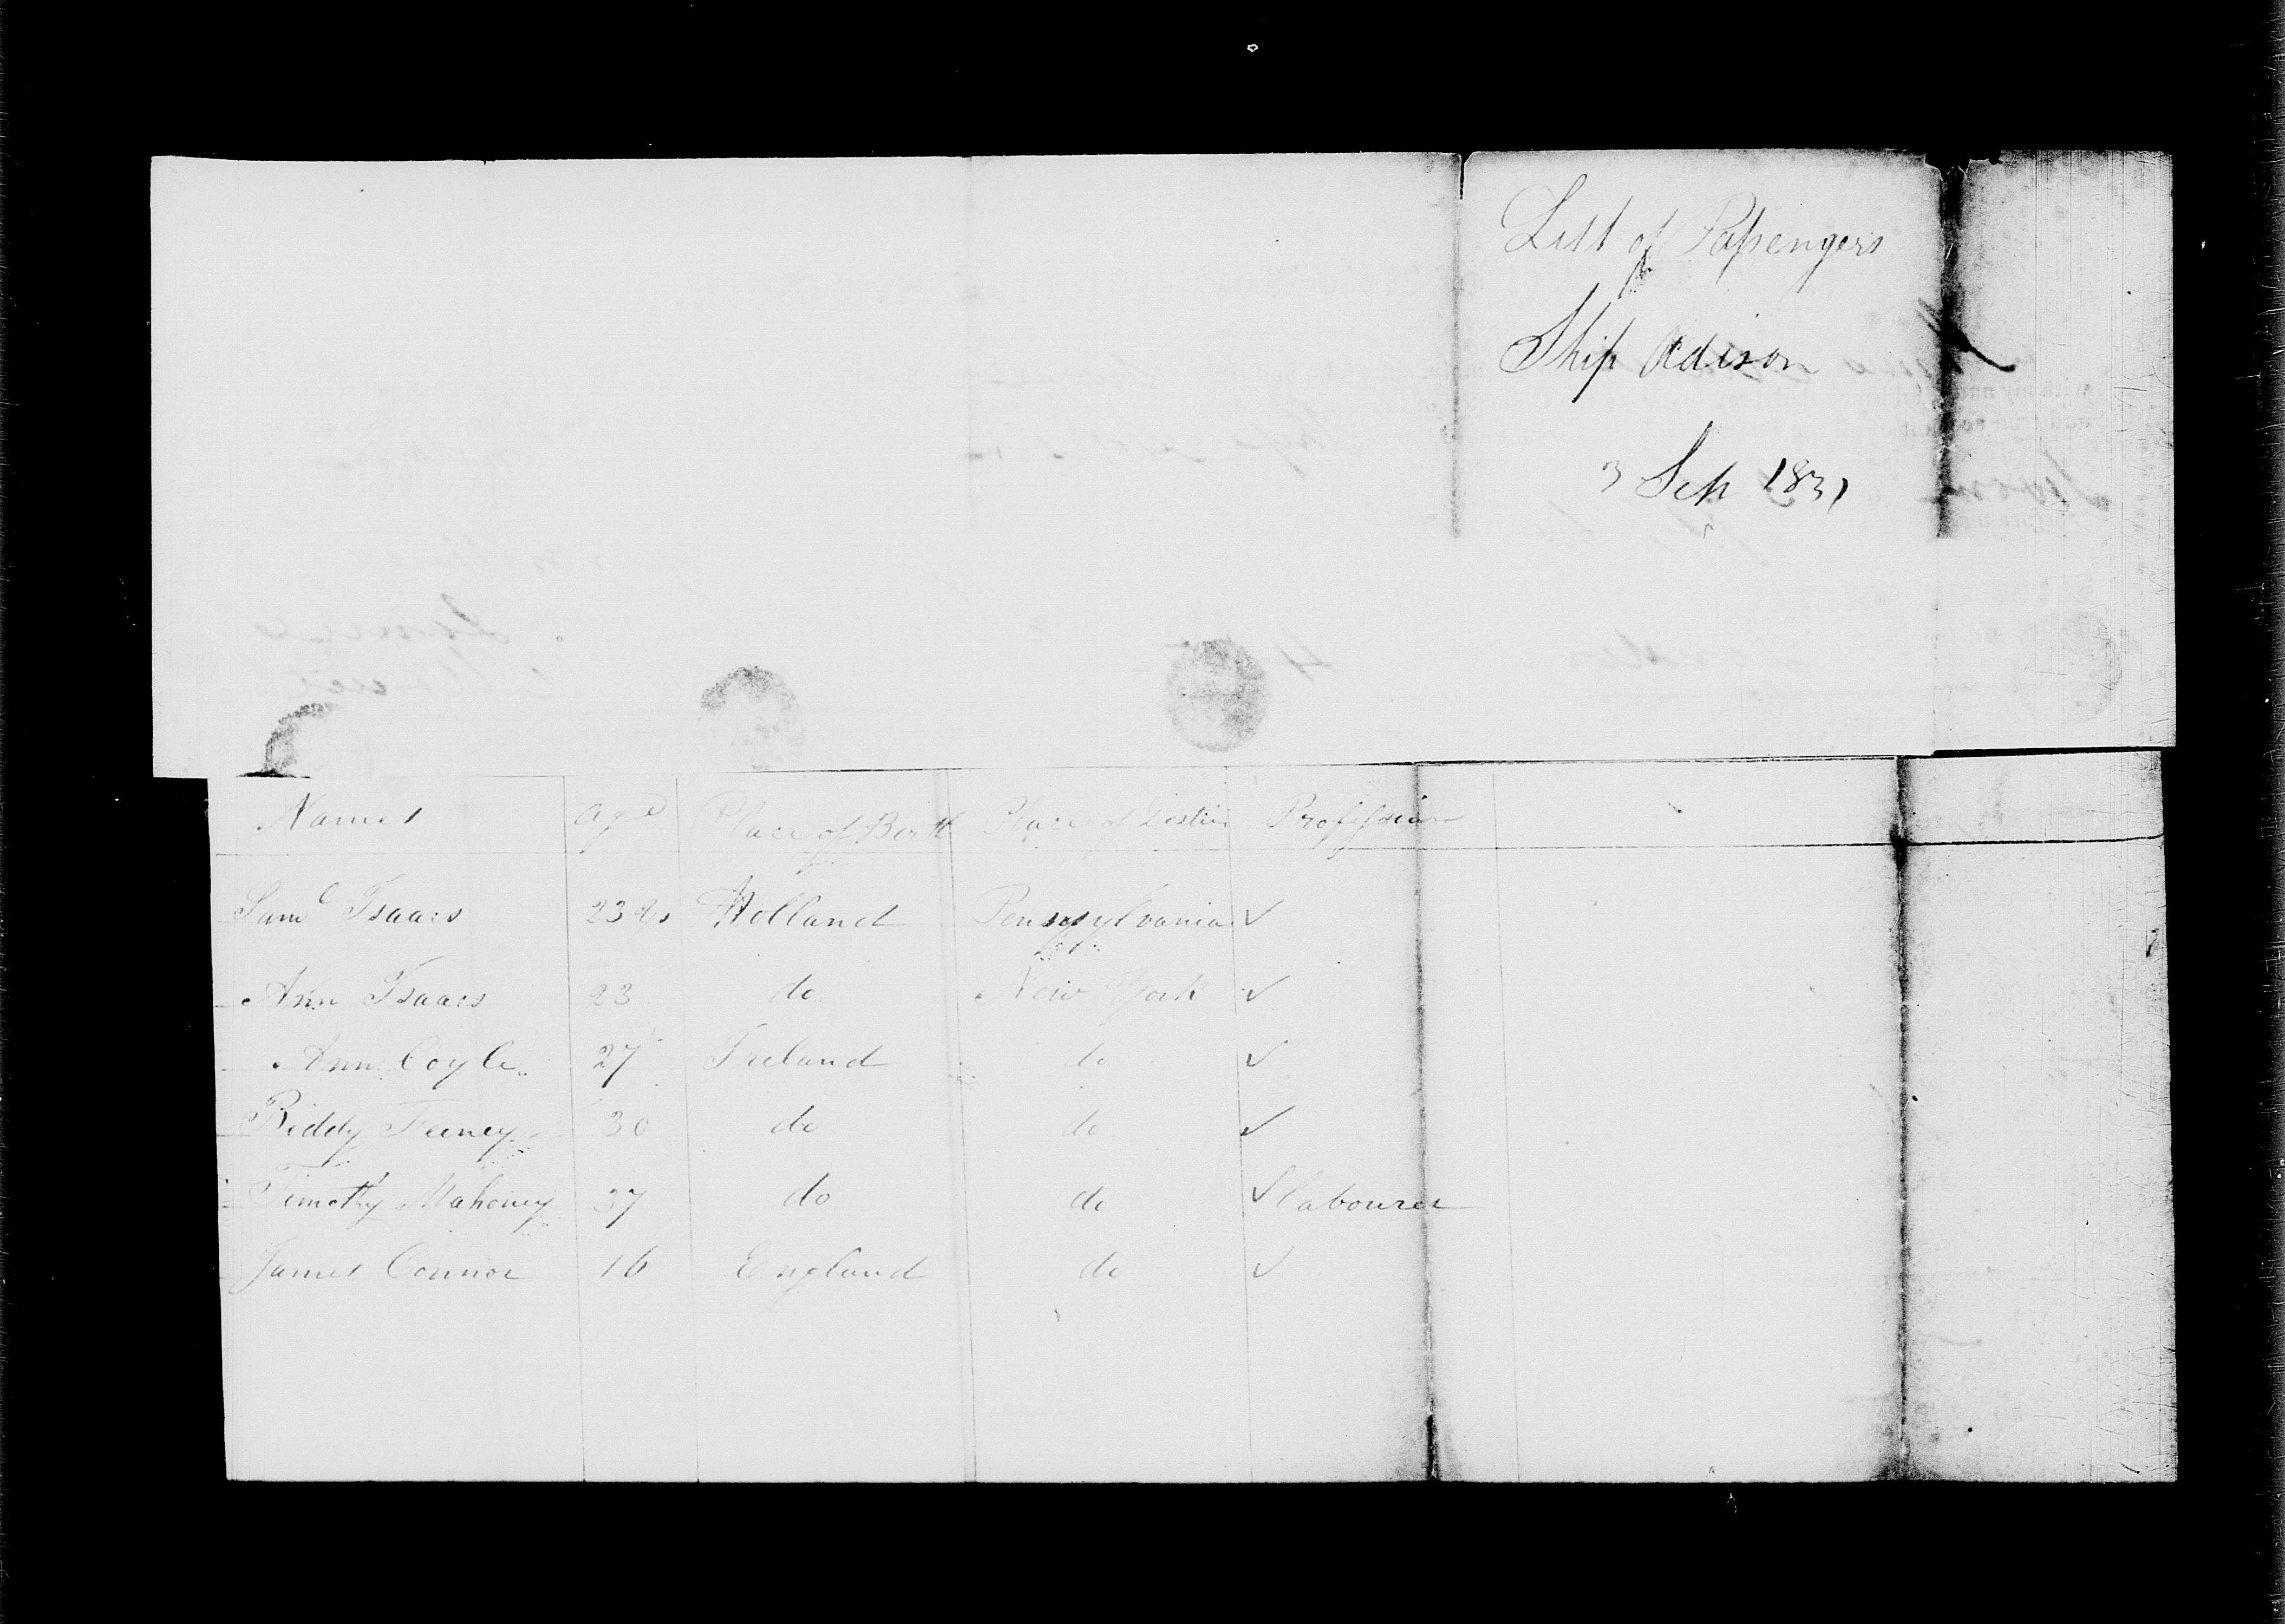 List of Passengers
Ship Adison
3 Sep 1831
Names Age Place of Birth Place of Destin Profession
Saml Isaacs 23 yrs Holland Pennsylvania ✓
Ann Isaacs 23 do New York ✓
Ann Coyle 27 Ireland do ✓
Biddy Feeney 30 do do ✓
Timothy Mahoney 37 do do ✓ labourer
James Connor 16 England do ✓